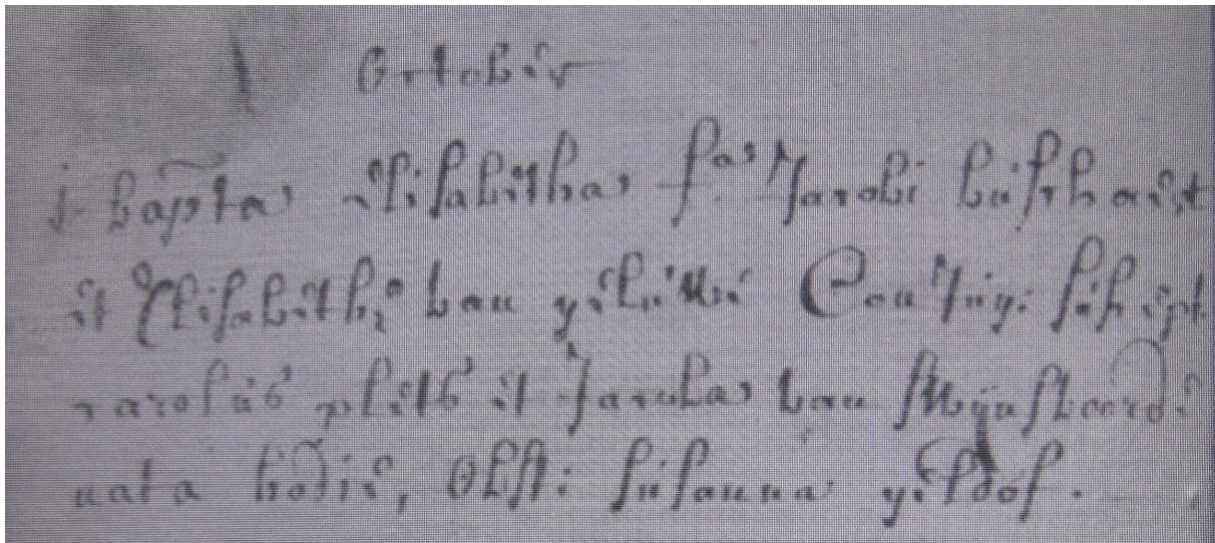 October
j bapta Elisabetha fa Jacobi busschaert
et Elisabethe van geluwe Coniug: susscept
carolus plets et Jacoba van Mijnsberd:
nata hodie, Obst: susanna geldof.